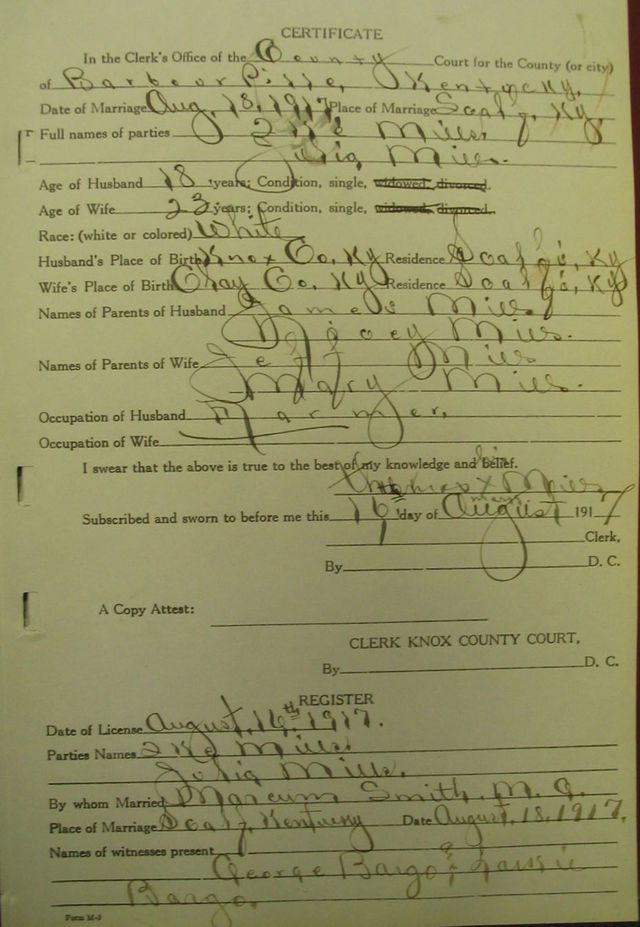 CERTIFICATE
In the Clerk's Office of the County Court for the County (or city)
of Barbourville, Kentucky,
Date of Marriage Aug, 18, 1917, Place of Marriage Scalf, Ky,
Full names of parties Mills,
Julia Mills.
Age of Husband 18 years; Condition, single, widowed, divorced.
Age of Wife 23 years; Condition, single, widowed, divorced.
Race: (white or colored) White
Husband's Place of Birth Knox Co, Ky Residence Scalf, Ky
Wife's Place of Birth Clay Co, Ky Residence Scalf, Ky
Names of Parents of Husband James Mills
Mills.
Names of Parents of Wife Jeff Mills
Mary Mills.
Occupation of Husband Farmer,
Occupation of Wife
I swear that the above is true to the best of my knowledge and belief.
his
Thomas X Mills
mark
Subscribed and sworn to before me this 16th day of August 1917
Clerk,
By D. C.
A Copy Attest:
CLERK KNOX COUNTY COURT,
By D. C.
REGISTER
Date of License August, 16th, 1917.
Parties Names Mills,
Julia Mills,
By whom Married Marcum Smith, M. G.
Place of Marriage Scalf, Kentucky Date August, 18, 1917,
Names of witnesses present
George Bargo &
Bargo.
Form M-3